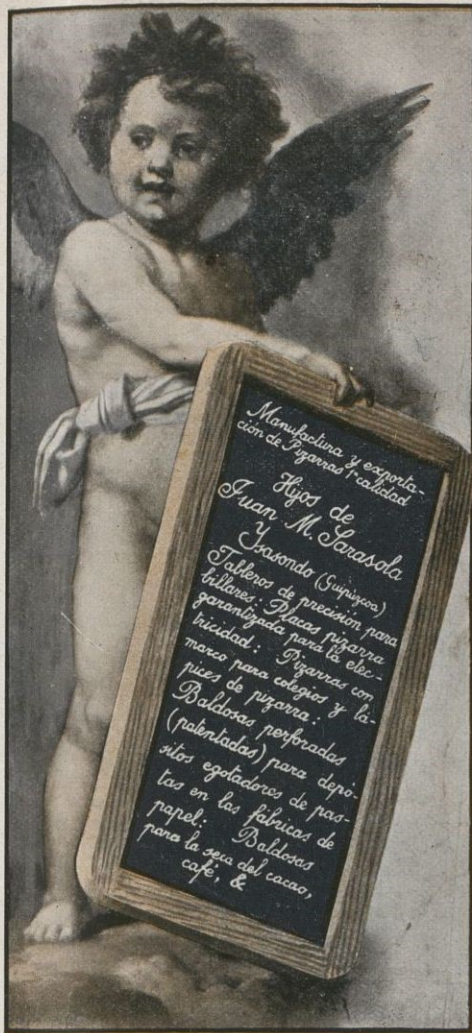 Manufactura y exporta-
ción de Pizarras 1ª calidad
Hijos de
Juan M. Sarasola
Ysasondo (Guipúzcoa)
Tableros de precisión para
billares: Placas pizarra
garantizada para la elec-
tricidad: Pizarras con
marco para colegios y lá-
pices de pizarra:
Baldosas perforadas
(patentadas) para depó-
sitos egotadores de pas-
tas en las fábricas de
papel: Baldosas
para la seca del cacao,
café, &